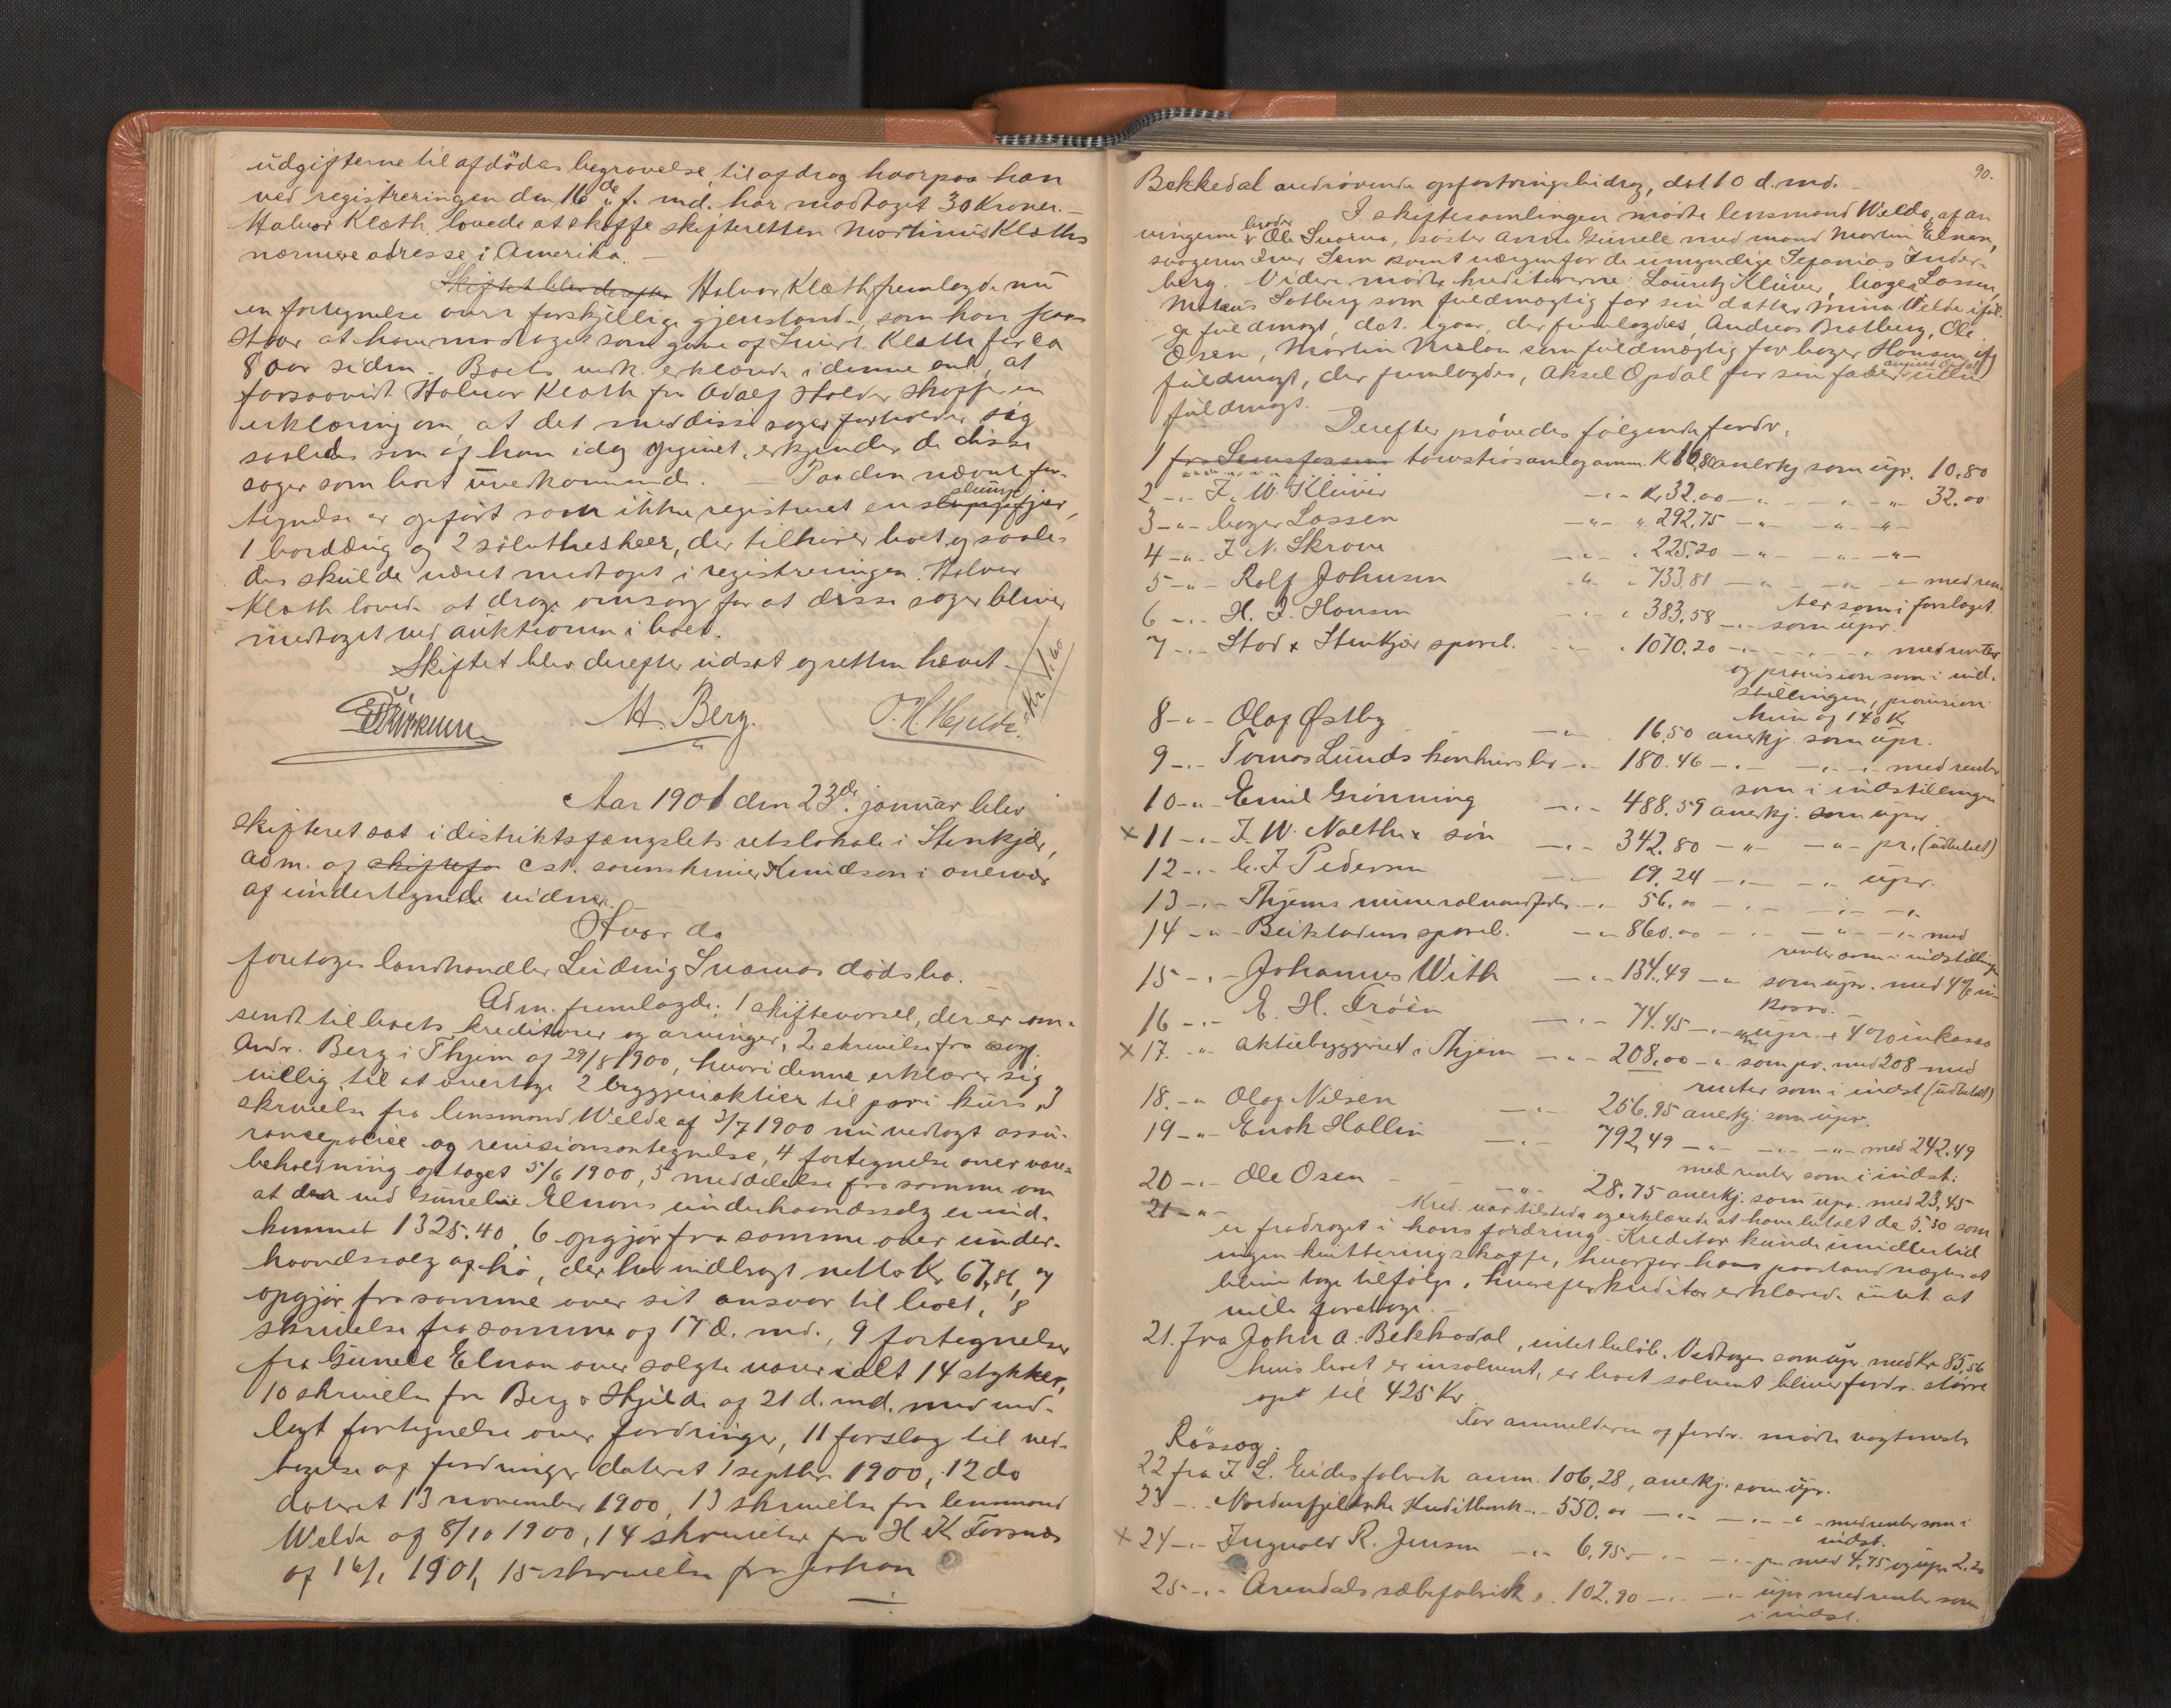 udgifterne til afdödes begravelse, til afdrag hvorpaa han
ved registreringen den 16de f. md. har modtaget 30 Kroner. –
Halvor Klæth lovede at skaffe skifteretten Martinus Klæths
nærmere adresse i Amerika. –
Skiftet blev derefter Halvor Klæth fremlagde nu
en fortegnelse over forskjellige gjenstande, som han paa-
staar at have modtaget som gave af Sivert Klæth for ca
8 aar siden. Boets erklærede i denne anl. at
forsaavidt Halvor Klæth fra Adolf Stolder skaffer en
erklæring om, at det med disse sager forholder sig
saaledes som af ham idag opgivet, erkjendes de disse
sager som boet uvedkommende. – Paa den nævnte for-
tegnelse er opført som ikke registreret en slump fjær,
1 borddug og 2 sølvtheskeer, der tilhører boet og saale-
des skulde været medtaget i registreringen. Halvor
Klæth lovede at drage omsorg for at disse sager bliver
medtaget ved auktionen i boet.
Skiftet blev derefter udsat og retten hævet. – Kr 1.60
M. Berg. O. H. Hjelde.
Aar 1901 den 23de januar blev
skifteret sat i distriktsfængslets retslokale i Stenkjær,
adm. af skiftefo cst. sorenskriver Knudson i overvær
af undertegnede vidner.
Hvor da
foretoges landhandler Ludvig Svarvas dødsbo.
Adm. fremlagde: 1 skiftevarsel, der er om-
sendt til boets kreditorer og arvinger, 2 skrivelse fra
Andr. Berg i Thjem af 29/8 1900, hvori denne erklærer sig
villig til at overtage 2 bryggeriaktier til pari kurs, 3
skrivelse fra lensmand Welde af 3/7 1900 nu vedlagt assu-
rancepolice og revisionsantegnelse, 4 fortegnelse over vare-
beholdning optaget 5/6 1900, 5 meddelelse fra samme om
at der ved Gunelie Elnans underhaandssalg er ind-
kommet 1325.40, 6 opgjør fra samme over under-
haandssalg af hø, der har indbragt netto Kr. 67,86, 7
opgjør fra samme over sit ansvar til boet, 8
skrivelse fra samme af 17 d. md., 9 fortegnelse
fra Gunele Elnan over solgte varer ialt 14 stykker,
10 skrivelse fra Berg & Hjelde af 21 d. md. med ved-
lagt fortegnelse over fordringer, 11 forslag til ved-
tagelse af fordringer dateret 1 septbr 1900, 12 do
dateret 13 november 1900, 13 skrivelse fra lensmand
Welde af 8/10 1900, 14 skrivelse fra H K Forsnæs
af 16/1 1901, 15 skrivelse fra Johan
90.
Bekkedal andrørende opfostringsbidrag, dat 10 d. md. –
I skiftesamlingen mødte lensmand Welde, af ar-
vingerne broder Ole Svarva, søster Anna Gunele med mand Martin Elnan,
svogeren Iver Sem samt værgen for de umyndige Sefanias Inder-
berg. Videre mødte kreditorerne: Lauritz Klüver, bager Lossen,
Solberg som fuldmægtig for sin datter Mina Welde iføl-
ge fuldmagt, dat. igaar, der fremlagdes, Andreas Bratberg, Ole
Osen, Martin som fuldmægtig for bager Hansen iflg
fuldmagt, der fremlagdes, Aksel Opdal for sin fader uden
fuldmagt.
Derefter prøvedes følgende fordr.
1 anm. K 10,80 anerkj som upr. 10.80
2 –„– F. W. Klüver –„– Kr 32.00 –„– –„– „ 32.00
3 –„– bager Lossen –„– „ 292.75 –„– –„– –„–
4 –„ F. N. Skrove –„– „ 225.20 –„– –„– –„–
5 –„– Rolf Johnsen „ „ 733.81 –„ –„– med ren-
ter som i forslaget.
6 –„– H. F. Hansen –„– „ 383.58 –„– som upr.
7 –„– Stod & Stenkjær spareb. –„– „ 1070.20 –„– –„– med renter
og provision som i ind-
stillingen, provision
kun af 140 Kr
8 –„– Olaf Østby –„– 16.50 anerkj. som upr.
9 –„– Tomas Lunds konkursbo –„– 180.46 –„– –„– med renter
som i indstillingen
10 –„– Emil Grønning –„– 488.59 anerkj. som upr
× 11 –„– F. W. Næth & søn –„– 342.80 –„– –„– pr. (udbetalt)
12 –„– C. F. Pedersen –„– 19.24 –„– –„– upr.
13 –„– Thjems mineralvandfabr. –„– 56.00 –„– –„– –„–
14 –„– Beitstadens spareb. –„– 860.00 –„– –„– –„– med
renter som i indstillingen
15 –„– Johannes With –„– 134.49 –„– som upr. med 4% in-
kasso.
16 –„– E. H. Frøen –„– 74.45 –„– som upr. + 4% inkasso
× 17. „ Aktiebryggeriet i Thjem –„– 208.00 –„– som pr. med 208 med
renter som i indst (udbetalt)
18. –„ Olaf Nilsen –„– 256.95 anerkj. som upr.
19 –„– Enok Hallin –„– 792,49 –„– –„– –„– med 242.49
med renter som i indst.
20 –„– Ole Osen –„– 28.75 anerkj. som upr. med 23,45
21 –„– Kred. var tilstede og erklærede at have betalt de 5.30 som
er fradraget i hans fordring. Kreditor kunde imidlertid
ingen kvittering skaffe, hvorfor hans paastand nægtes at
blive tage tilfølge, hvorefter kreditor erklærede intet at
ville foretage. –
21. fra John A. Bekkadal, intet beløb. Vedtages som upr. med Kr 85,56
hvis boet er insolvent, er boet solvent bliver fordr. større
opt til 425 Kr.
For anmelderen af fordr. mødte
Røssog.
22 fra F L. Eides fabrik anm. 106,28, anerkj. som upr.
23 –„– Nordenfjeldske Kreditbank –„– 550.00 –„– –„– med renter som i
indst.
× 24 –„– Ingvald R. Jensen –„– 6,95 –„– –„– pr med 4,75 og upr. 2.20
25 –„– Arendals sæbefabrik „ 102.90 –„– –„– upr med renter som
i indst.